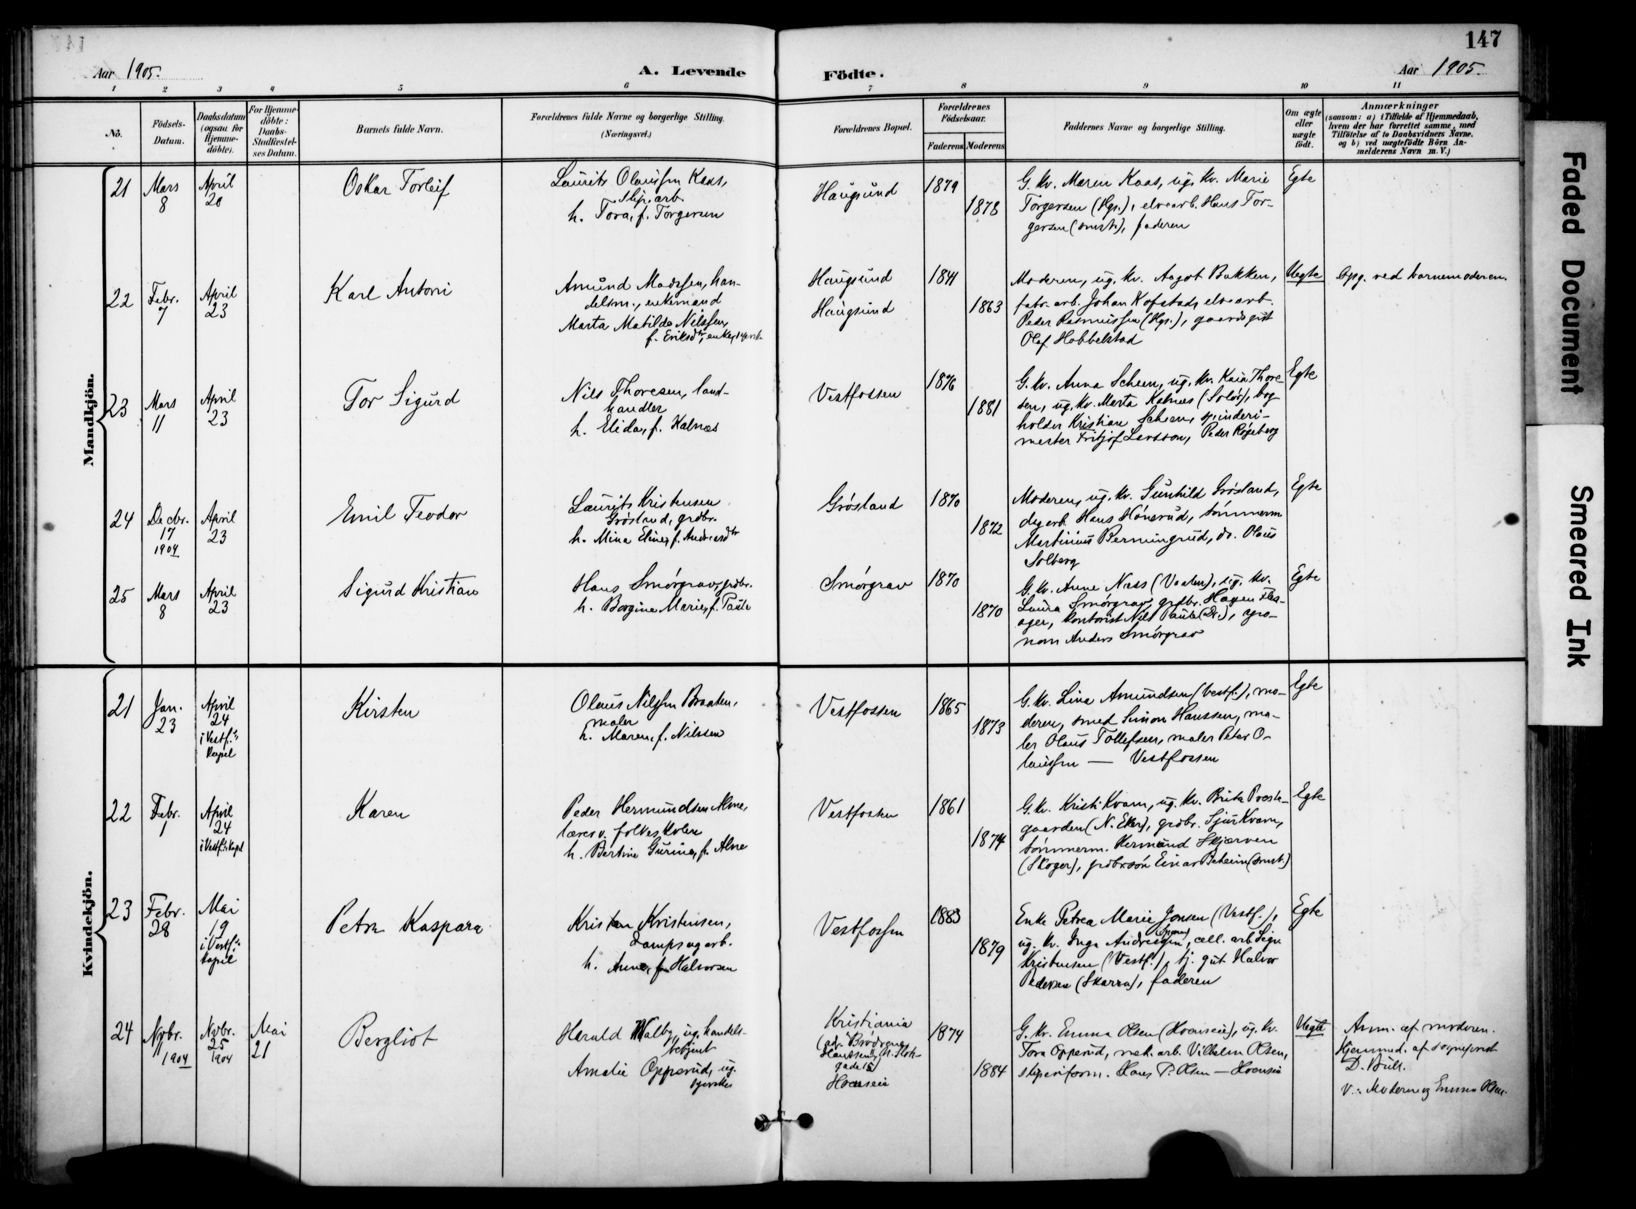 147
Aar 1905.
A. Levende
Födte.
Aar 1905.
1 2 3 4 5 6 7 8 9 10 11
No.
Födsels-
Datum.
Daabsdatum
(ogsaa for
Hjemme-
döbte).
For Hjemme-
döbte:
Daabs-
Stadfæstel-
ses Datum.
Barnets fulde Navn.
Forældrenes fulde Navne og borgerlige Stilling.
(Næringsvei.)
Forældrenes Bopæl.
Forældrenes
Födselsaar.
Faderens Moderens
Faddernes Navne og borgerlige Stilling.
Om ægte
eller
uægte
födt.
Anmærkninger
(saasom: a) i Tilfælde af Hjemmedaab,
hvem der har forrettet samme, med
Tilföielse af to Daabsvidners Navne,
og b) ved uægtefödte Börn An-
melderens Navn m. V.)
Mandkjön.
21
Mars
8
April
20
Oskar Torleif
Laurits Olaussen Kaas,
slip.arb.
h. Tora, f. Torgersen
Haugsund
1879
1878
G. kv. Maren Kaas, ug. kv. Marie
Torgersen (Hgs.), elvearb. Hans Tor-
gersen (smst.), faderen
Egte
22
Febr.
7
April
23
Karl Antoni
Amund Madssen, han-
delsm., enkemand
Marta Matilde Nilssen,
f. Eriksdtr, enke
Haugsund
Haugsund
1841
1863
Moderen, ug. kv. Aagot Bakken,
fabr. arb. Johan Kofstad, elvearb.
Peder Rasmussen (Hgs.), gaardsgut
Olaf Hobbelstad
Uegte
Opg. ved barnemoderen
23
Mars
11
April
23
Tor Sigurd
Nils Thoresen, land-
handler
h. Elida, f. Kalnæs
Vestfossen
1876
1881
G. kv. Anna Scheen, ug. kv. Kaia Thore-
sen, ug. kv. Marta Kalnæs (Solør), bog-
holder Kristian Scheen, spinderi-
mester Fritjof Larsson, Peder Røgeberg
Egte
24
Decbr.
17
1904
April
23
Emil Teodor
Laurits Kristensen
Grøsland, grdbr.
h. Mina Eline, f. Andersdtr
Grøsland
1870
1872
Moderen, ug. kv. Gunhild Grøsland,
dagarb. Hans Hønerud, tømmerm.
Martinius Bermingrud, do. Olaus
Solberg
Egte
25
Mars
8
April
23
Sigurd Kristian
Hans Smørgrav, grdbr.
h. Borgine Marie, f. Paule
Smørgrav
1870
1870
G. kv. Anne Næss (Vaalen), ug. kv.
Laura Smørgrav, grdbr. Hagen Has-
ager, kontorist Nils Paule (Dr.), agro-
nom Anders Smørgrav
Egte
Kvindekjön.
21
Jan.
23
April
24
i Vestf.s
Kapel
Kirsten
Olaus Nilssen Braaten,
maler
h. Maren, f. Nilssen
Vestfossen
1865
1873
G. kv. Lina Amundsen (Vestf.), mo-
deren, smed Simon Hanssen, ma-
ler Olaus Tollefsen, maler Peter O-
laussen — Vestfossen
Egte
22
Febr.
1
April
24
i Vestf.s Kapel
Karen
Peder Hermundsen Alme,
lærer v. folkeskolen
h. Bertine Gurine, f. Alme
Vestfossen
1861
1874
G. kv. Kristi Kvam, ug. kv. Brita Preste-
gaarden (N. Eker), grdbr. Sjur Kvam,
tømmerm. Hermund Skjerven
(Skoger), grdbrsøn Einar Beheim (smst.)
Egte
23
Febr.
28
Mai
19
i Vestf.s
Kapel
Petra Kaspara
Kristian Kristensen,
dampsagarb.
h. Anne, f. Halvorsen
Vestfossen
1883
1879
Enke Petrea Marie Jonsen (Vestf.),
ug. kv. Inga Andresen, cell. arb.
Kristensen (Vestf.), tj. gut Halvor
Pedersen (Skarra), faderen
Egte
24
Novbr.
1
1904
Novbr.
25
1904
Mai
21
Bergliot
Harald Walby, ug. handels-
betjent
Amalie Opperud, ug.
syerske
Kristiania
Hoenseie
1874
1884
G. kv. Emma Olsen (Hoenseie), ug. kv.
Tora Opperud, mek. arb. Vilhelm Olsen,
sliperiform. Hans P. Olsen — Hoenseie
Uegte
Anm. af moderen.
Hjemmed. af sogneprest
D. Bull.
V.: Moderen og Emma Olsen.
Faded Document
Smeared Ink